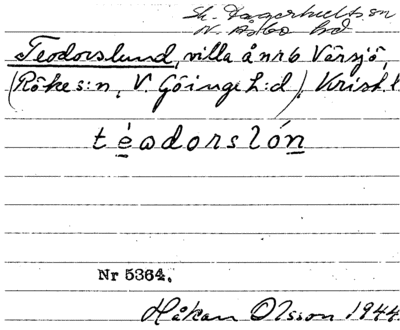 Sk. Fagerhults sn
N. Åsbo hd
Teodorslund, villa å nr 6 Värsjö,
(Röke s:n, V. Göinge h:d), Krist. l.
téodorslón
Nr 5364.
Håkan Olsson 1944